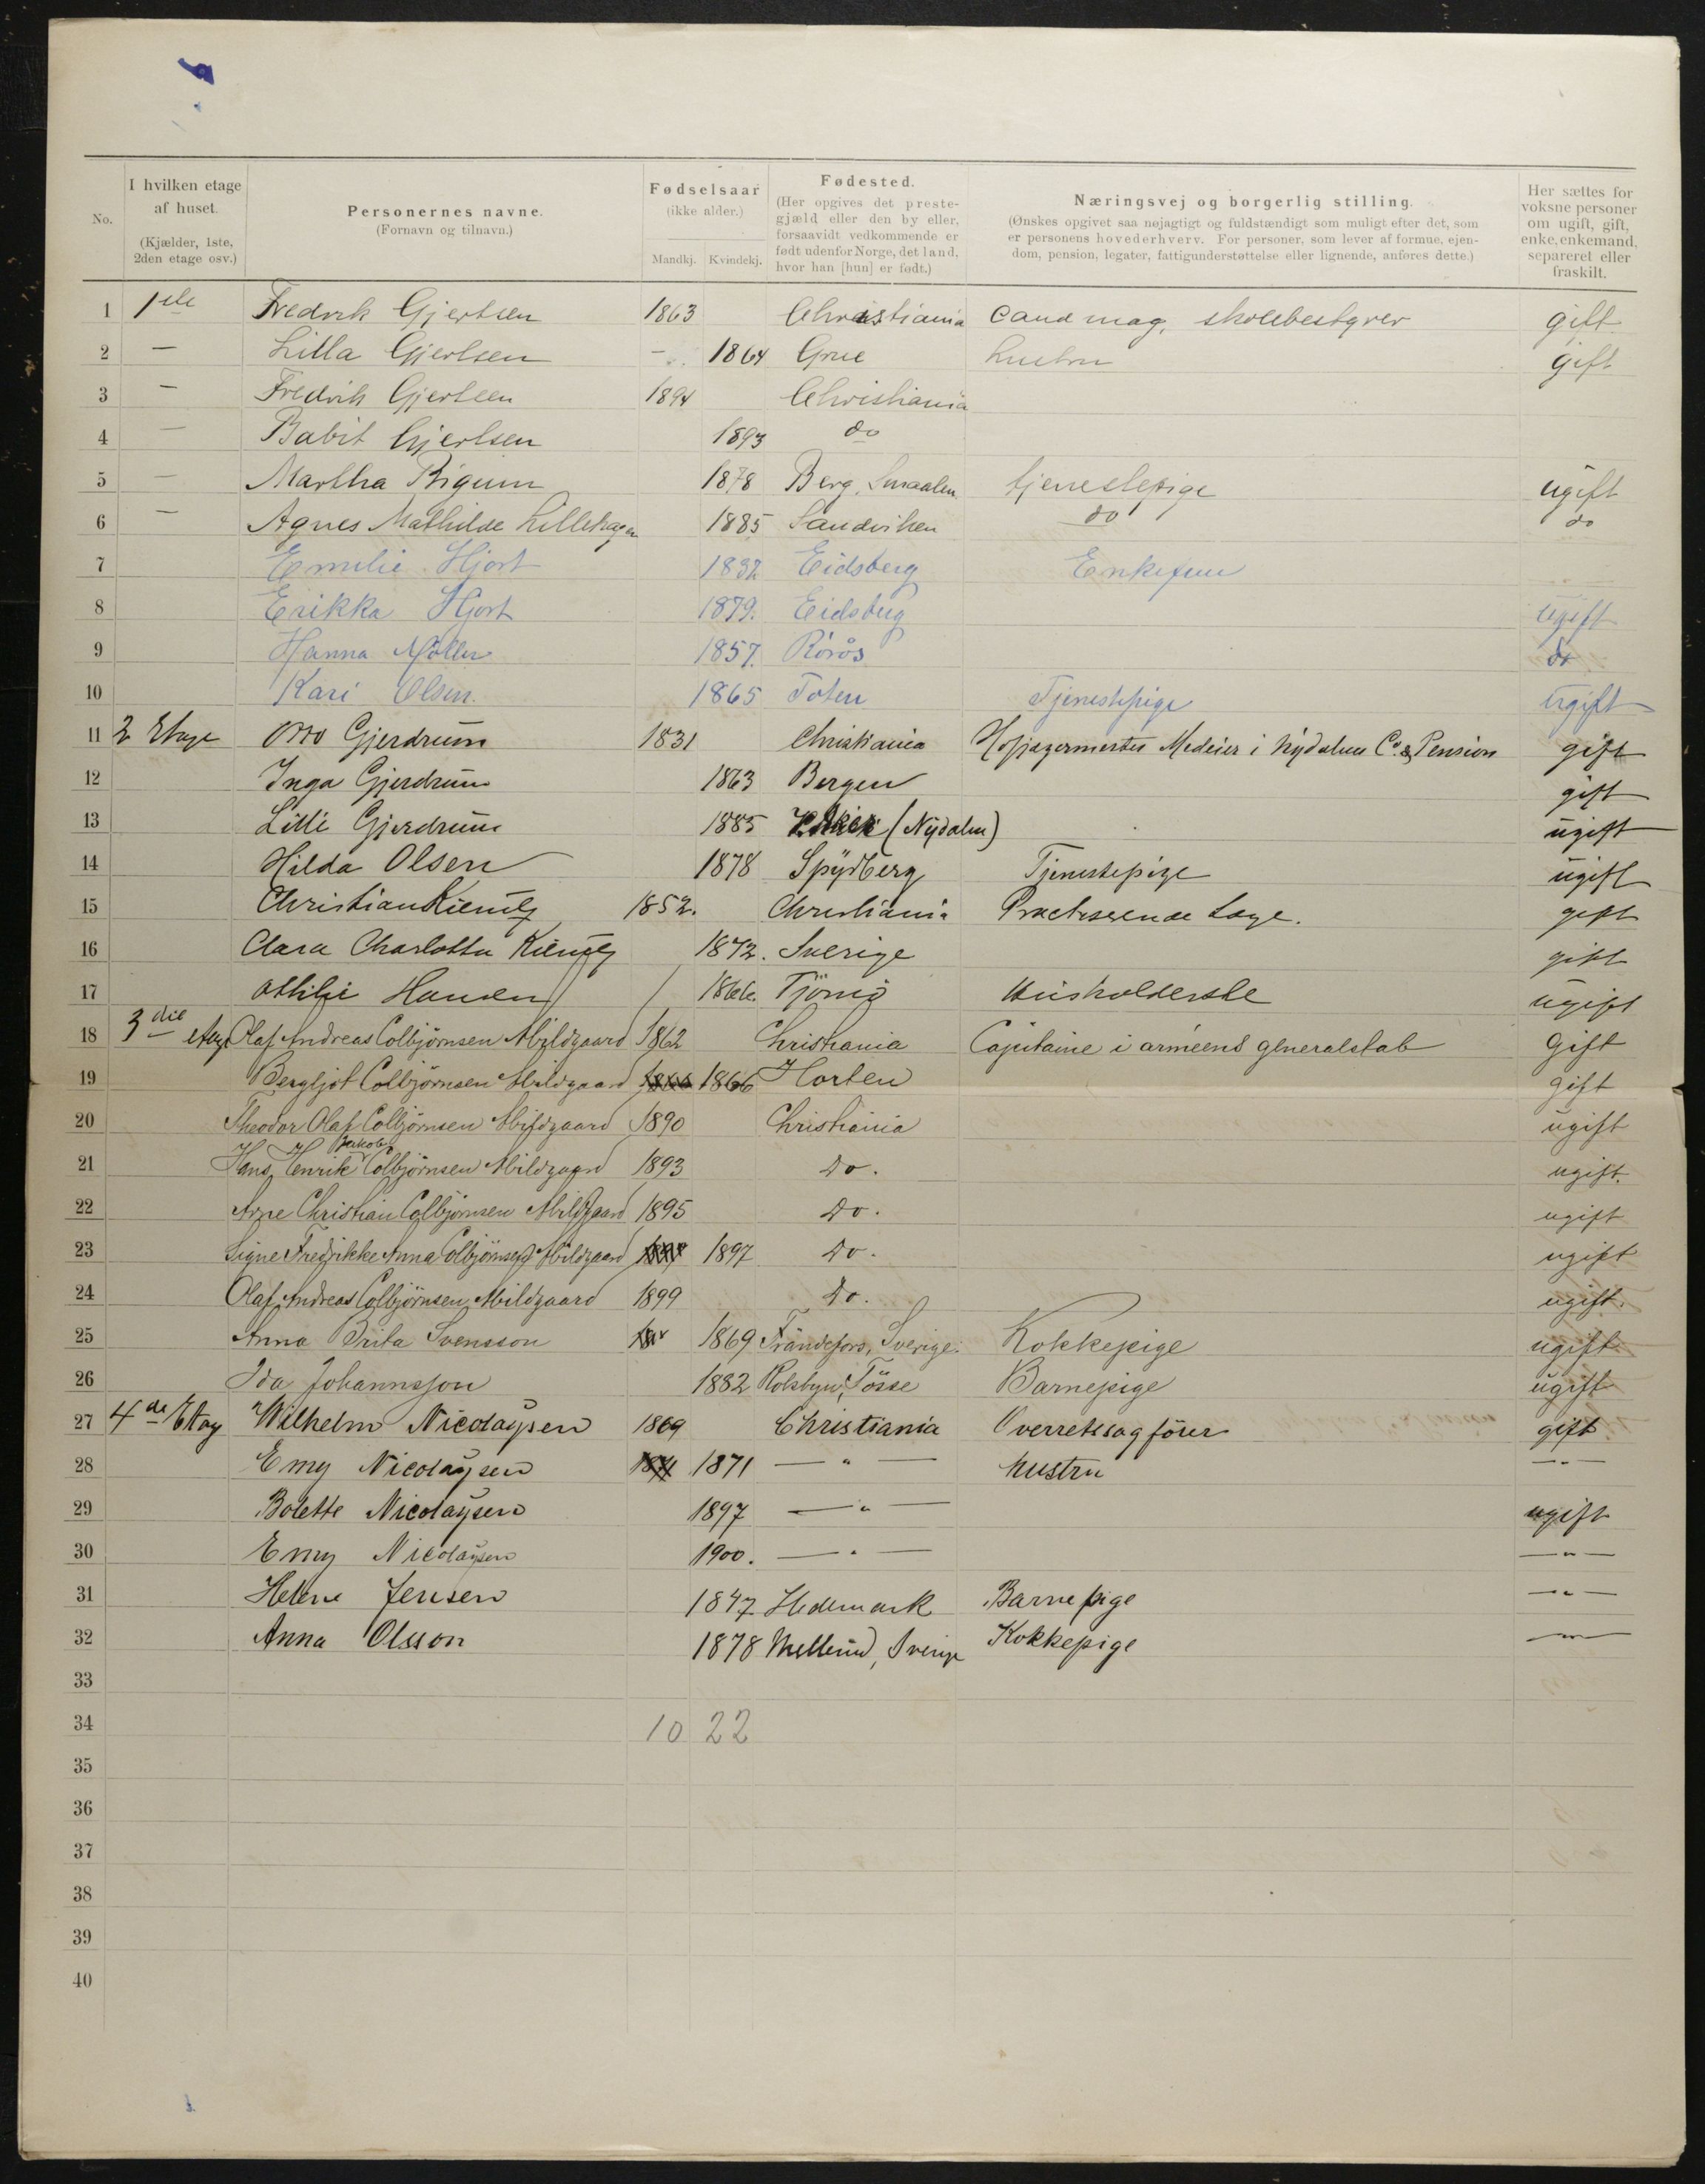 No. I hvilken etage af huset. (Kjælder, 1ste, 2den etage osv.) Personernes navne. (Fornavn og tilnavn.) Fødselsaar (ikke alder.) Mandkj. Kvindekj. Fødested. (Her opgives det prestegjæld eller den by eller, forsaavidt vedkommende er født udenfor Norge, det land, hvor han [hun] er født.) Næringsvej og borgerlig stilling. (Ønskes opgivet saa nøjagtigt og fuldstændigt som muligt efter det, som er personens hovederhverv. For personer, som lever af formue, ejendom, pension, legater, fattigunderstøttelse eller lignende, anføres dette.) Her sættes for voksne personer om ugift, gift, enke, enkemand, separeret eller fraskilt.
1 1ste Fredrik Gjertsen 1863 Christiania Cand mag, skolebestyrer gift
2 — Lilla Gjertsen - 1864 Grue hustru gift
3 — Fredrik Gjertsen 1894 Christiania
4 — Babit Gjertsen 1893 do
5 — Martha Bigum 1878 Berg, Smaalen tjenestepige ugift
6 — Agnes Mathilde Lillehagen 1885 Sandviken do do
7 Emilie Hjort 1832 Eidsberg Enkefrue
8 Erikka Hjort 1879. Eidsberg ugift
9 Hanna Møller 1857. Rörös do
10 Kari Olsen. 1865 Toten Tjenestepige ugift
11 2 Etage Otto Gjerdrum 1831 Christiania Hofjægermester Medeier i Nydalens Co. & Pension gift
12 Inga Gjerdrum 1863 Bergen gift
13 Lilli Gjerdrum 1885 Aker (Nydalen) ugift
14 Hilda Olsen 1878 Spydberg Tjenestepige ugift
15 Christian 1852. Christiania Practiserende Læge. gift
16 Clara Charlotta 1872. Sverige gift
17 Othilie Hansen 1866. Tjömö Husholderske ugift
18 3die Etage Olaf Andreas Colbjörnsen Abildgaard 1862 Christiania Capitaine i armeens generalstab Gift
19 Bergljot Colbjörnsen Abildgaard 1866 1866 Horten gift
20 Theodor Olaf Colbjörnsen Abildgaard 1890 Christiania ugift
21 Hans Henrik Jakob Colbjörnsen Abildgaard 1893 Do. ugift.
22 Arne Christian Colbjörnsen Abildgaard 1895 Do. ugift
23 Signe Fredrikke Anna Colbjörnsen Abildgaard 1897 Do. ugift
24 Olaf Andreas Colbjörnsen Abildgaard 1899 Do. ugift.
25 Anna Brita Svensson 1869 Frändefors, Sverige. Kokkepige ugift
26 Ida Johannsson 1882 Rolsbyn, Tösse Barnepige ugift
27 4de Etag Wilhelm Nicolaysen 1869 Christiania Overretssagförer gift
28 Emy Nicolaysen 1871 1871 — " — hustru — " —
29 Bolette Nicolaysen 1897 — " — ugift
30 Emy Nicolaysen 1900. — " — — " —
31 Helene Jensen 1847 Hedemark Barnepige — " —
32 Anna Olsson 1878 Mellerud, Sverige Kokkepige — " —
33
34 10 22
35
36
37
38
39
40